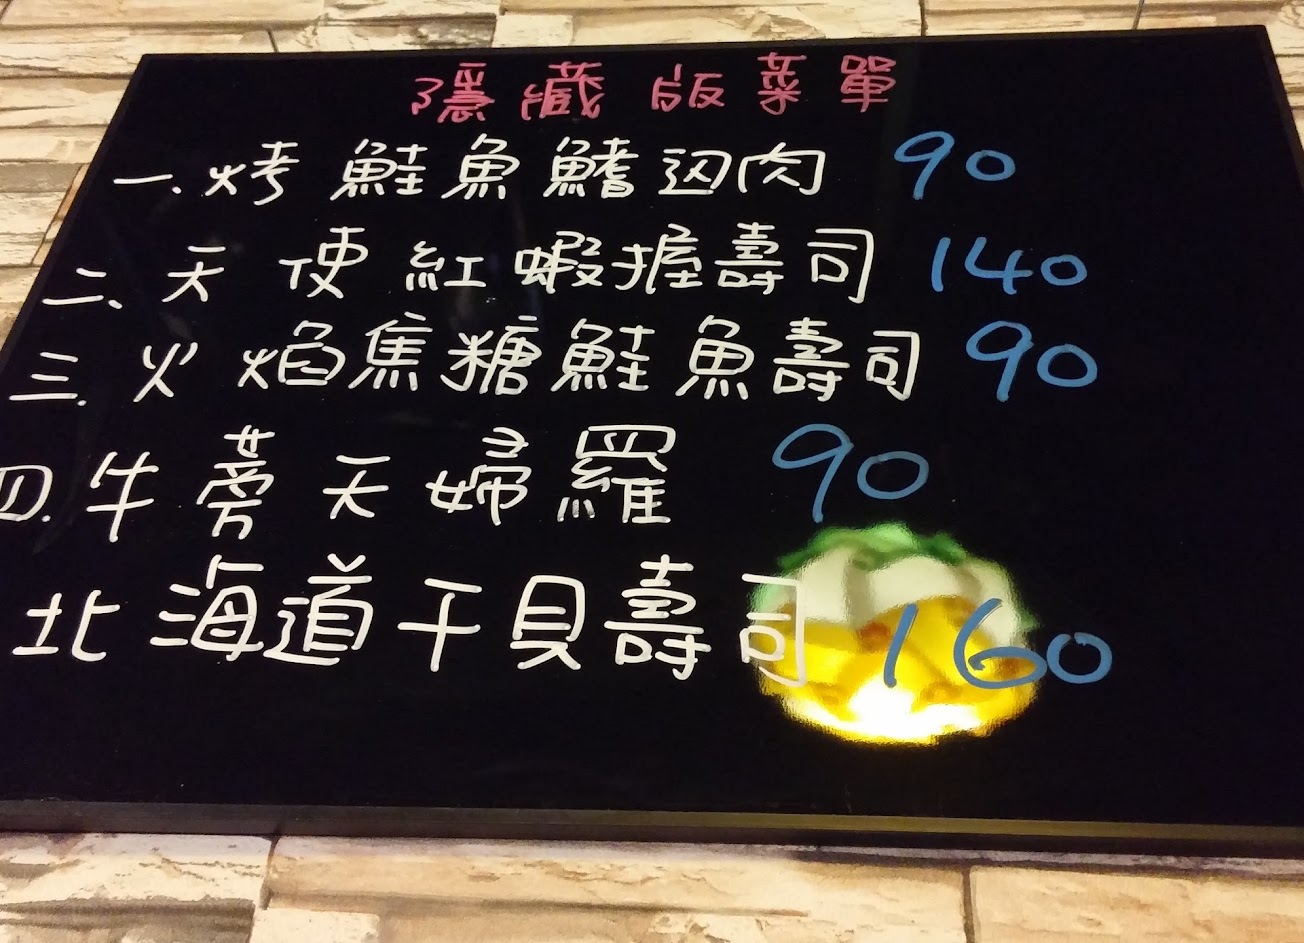 隱藏版菜單
一.烤鮭魚鰭边肉 90
二、天使紅蝦握壽司 140
三.火焰焦糖鮭魚壽司 90
四.牛蒡天婦羅 90
北海道干貝壽司 160